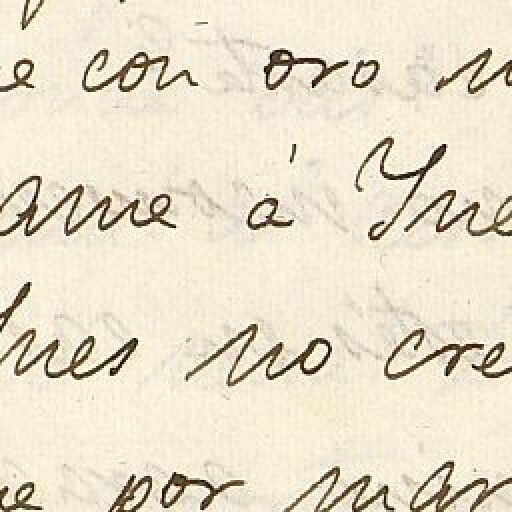 e con oro n
ame á Ine
Ines no cre
e por mar